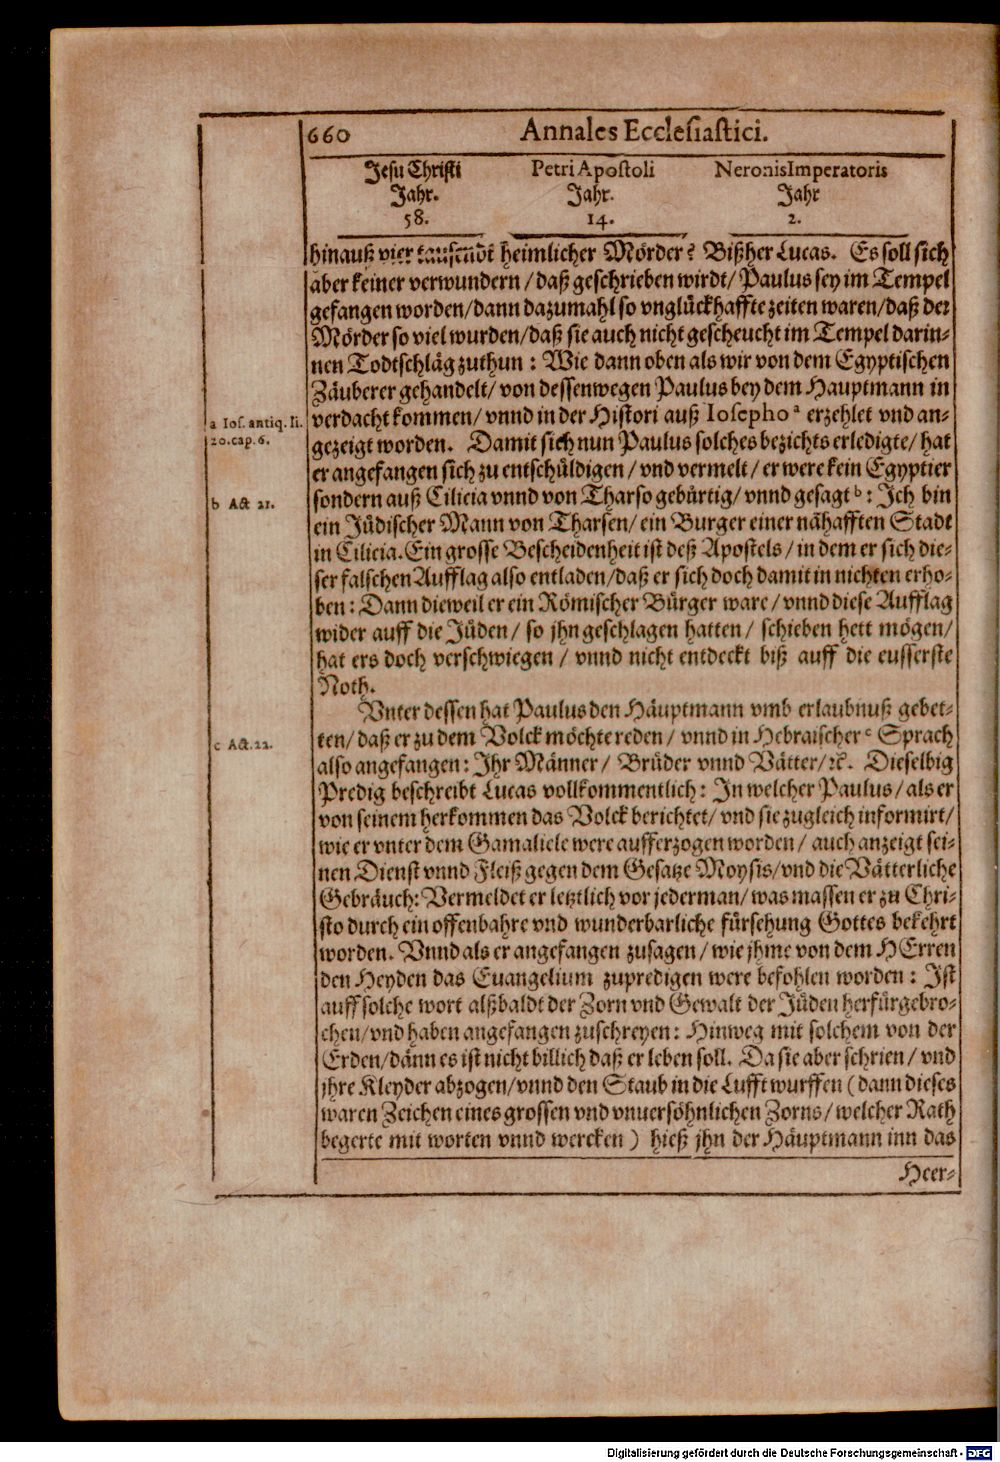 660 Annales Ecclesiastici.
Jesu Christi Petri Apostoli Neronis Imperatoris
Jahr. Jahr. Jahr
58. 14. 2.
hinauß vier tausendt heimlicher Mörder? Bißher Lucas. Es soll sich
aber keiner verwundern / daß geschrieben wirdt / Paulus sey im Tempel
gefangen worden / dann dazumahl so vnglückhaffte zeiten waren / daß der
Mörder so viel wurden / daß sie auch nicht gescheucht im Tempel darin-
nen Todtschläg zuthun : Wie dann oben als wir von dem Egyptischen
Zäuberer gehandelt / von dessenwegen Paulus bey dem Hauptmann in
a Ios. antiq. li. verdacht kommen / vnnd in der Histori auß Iosepho ᵃ erzehlet vnd an-
20. cap. 6. gezeigt worden. Damit sich nun Paulus solches bezichts erledigte / hat
er angefangen sich zu entschüldigen / vnd vermelt / er were kein Egyptier
b Act 21. sondern auß Cilicia vnnd von Tharso gebürtig / vnnd gesagt ᵇ : Ich bin
ein Jüdischer Mann von Tharsen / ein Burger einer nähafften Stadt
in Cilicia. Ein grosse Bescheidenheit ist deß Apostels / in dem er sich die-
ser falschen Aufflag also entladen / daß er sich doch damit in nichten erho-
ben : Dann dieweil er ein Römischer Bürger ware / vnnd diese Aufflag
wider auff die Jüden / so jhn geschlagen hatten / schieben hett mögen /
hat ers doch verschwiegen / vnnd nicht entdeckt biß auff die eusserste
Noth.
Vnter dessen hat Paulus den Häuptmann vmb erlaubnuß gebet-
c Act. 22. ten / daß er zu dem Volck möchte reden / vnnd in Hebraischer ᶜ Sprach
also angefangen : Ihr Männer / Brüder vnnd Vätter / ꝛc. Dieselbig
Predig beschreibt Lucas vollkommentlich : In welcher Paulus / als er
von seinem herkommen das Volck berichtet / vnd sie zugleich informirt /
wie er vnter dem Gamaliele were aufferzogen worden / auch anzeigt sei-
nen Dienst vnnd Fleiß gegen dem Gesatze Moysis / vnd die Vätterliche
Gebräuch : Vermeldet er letztlich vor jederman / was massen er zu Chri-
sto durch ein offenbahre vnd wunderbarliche fürsehung Gottes bekehrt
worden. Vnnd als er angefangen zusagen / wie jhme von dem HErren
den Heyden das Euangelium zupredigen were befohlen worden : Ist
auff solche wort alßbaldt der Zorn vnd Gewalt der Jüden herfürgebro-
chen / vnd haben angefangen zuschreyen : Hinweg mit solchem von der
Erden / dann es ist nicht billich daß er leben soll. Da sie aber schrien / vnd
jhre Kleyder abzogen / vnnd den Staub in die Lufft wurffen ( dann dieses
waren Zeichen eines grossen vnd vnuersöhnlichen Zorns / welcher Rath
begerte mit worten vnnd wercken ) hieß jhn der Häuptmann inn das
Heer-
Digitalisierung gefördert durch die Deutsche Forschungsgemeinschaft - DFG